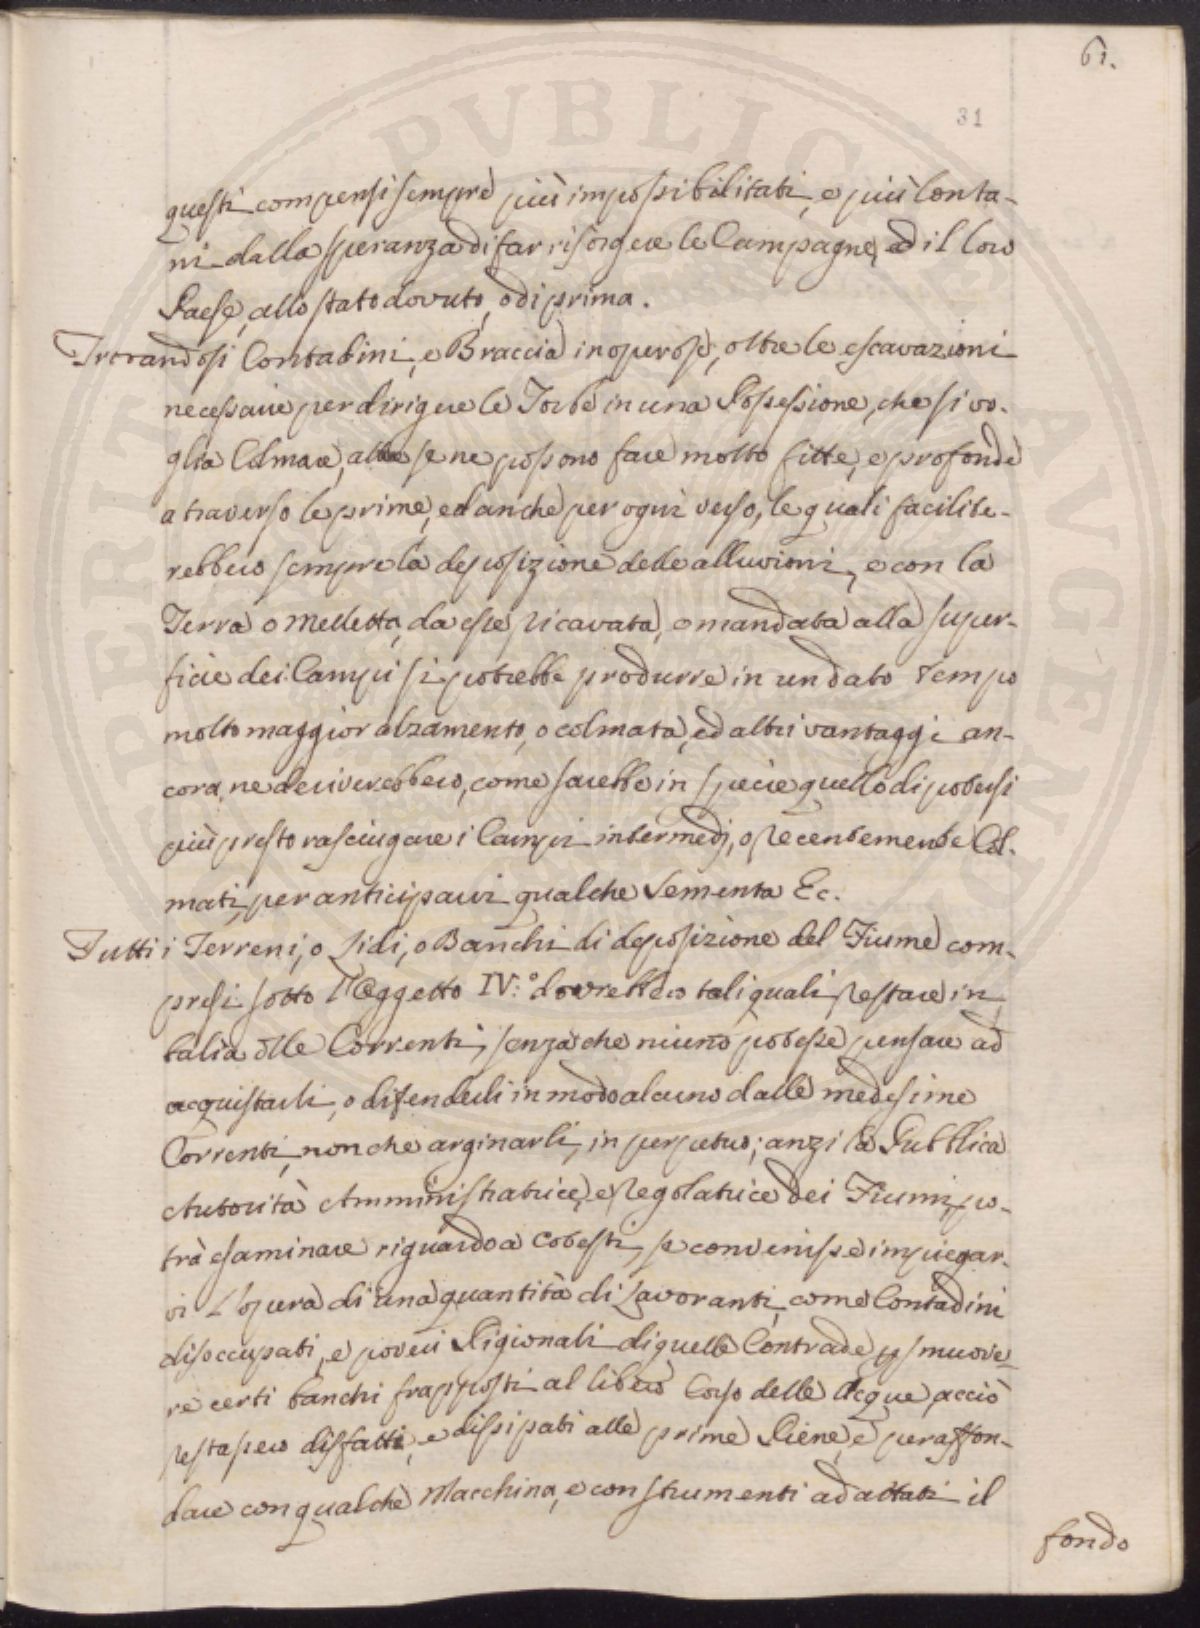 61.
31
questi compensi sempre più impossibilitati, e più lonta-
ni dalla speranza di far risorgere le Campagne, ed il loro
Paese, allo stato dovuto, o di prima.
Trovandosi Contadini, e Braccia inoperose, oltre le escavazioni
necessarie per dirigere le Torbe in una Possessione, che si vo-
glia Colmare, altre se ne possono fare molto fitte, e profonde
a traverso le prime, ed anche per ogni verso, le quali facilite-
rebbero sempre la deposizione delle alluvioni, e con la
Terra o Melletta, da esse ricavata, e mandata alla super-
ficie dei Campi si potrebbe produrre in un dato tempo
molto maggior alzamento, o colmata, ed altri vantaggi an-
cora ne deriverebbero, come sarebbe in specie quello di potersi
più presto rasciugare i Campi intermedj, o recentemente Col-
mati, per anticiparvi qualche Sementa Ec.
Tutti i Terreni, o Lidi, o Banchi di deposizione del Fiume com-
presi sotto l'Oggetto IV.º dovrebbero tali quali restare in
balia delle Correnti, senza che niuno potesse pensare ad
acquistarli, o difenderli in modo alcuno dalle medesime
Correnti, non che arginarli, in perpetuo; anzi la Pubblica
Autorità Amministratrice, e regolatrice dei Fiumi, po-
trà esaminare riguardo a cotesti, se convenisse impiegar-
vi l'opera di una quantità di Lavoranti, come Contadini
disoccupati, e poveri Pigionali di quelle Contrade, p smuove-
re certi banchi frapposti al libero Corso delle Acque, acciò
restassero disfatti, e dissipati alle prime Piene, e per affon-
dare con qualche Macchina, e con strumenti adattati il
fondo